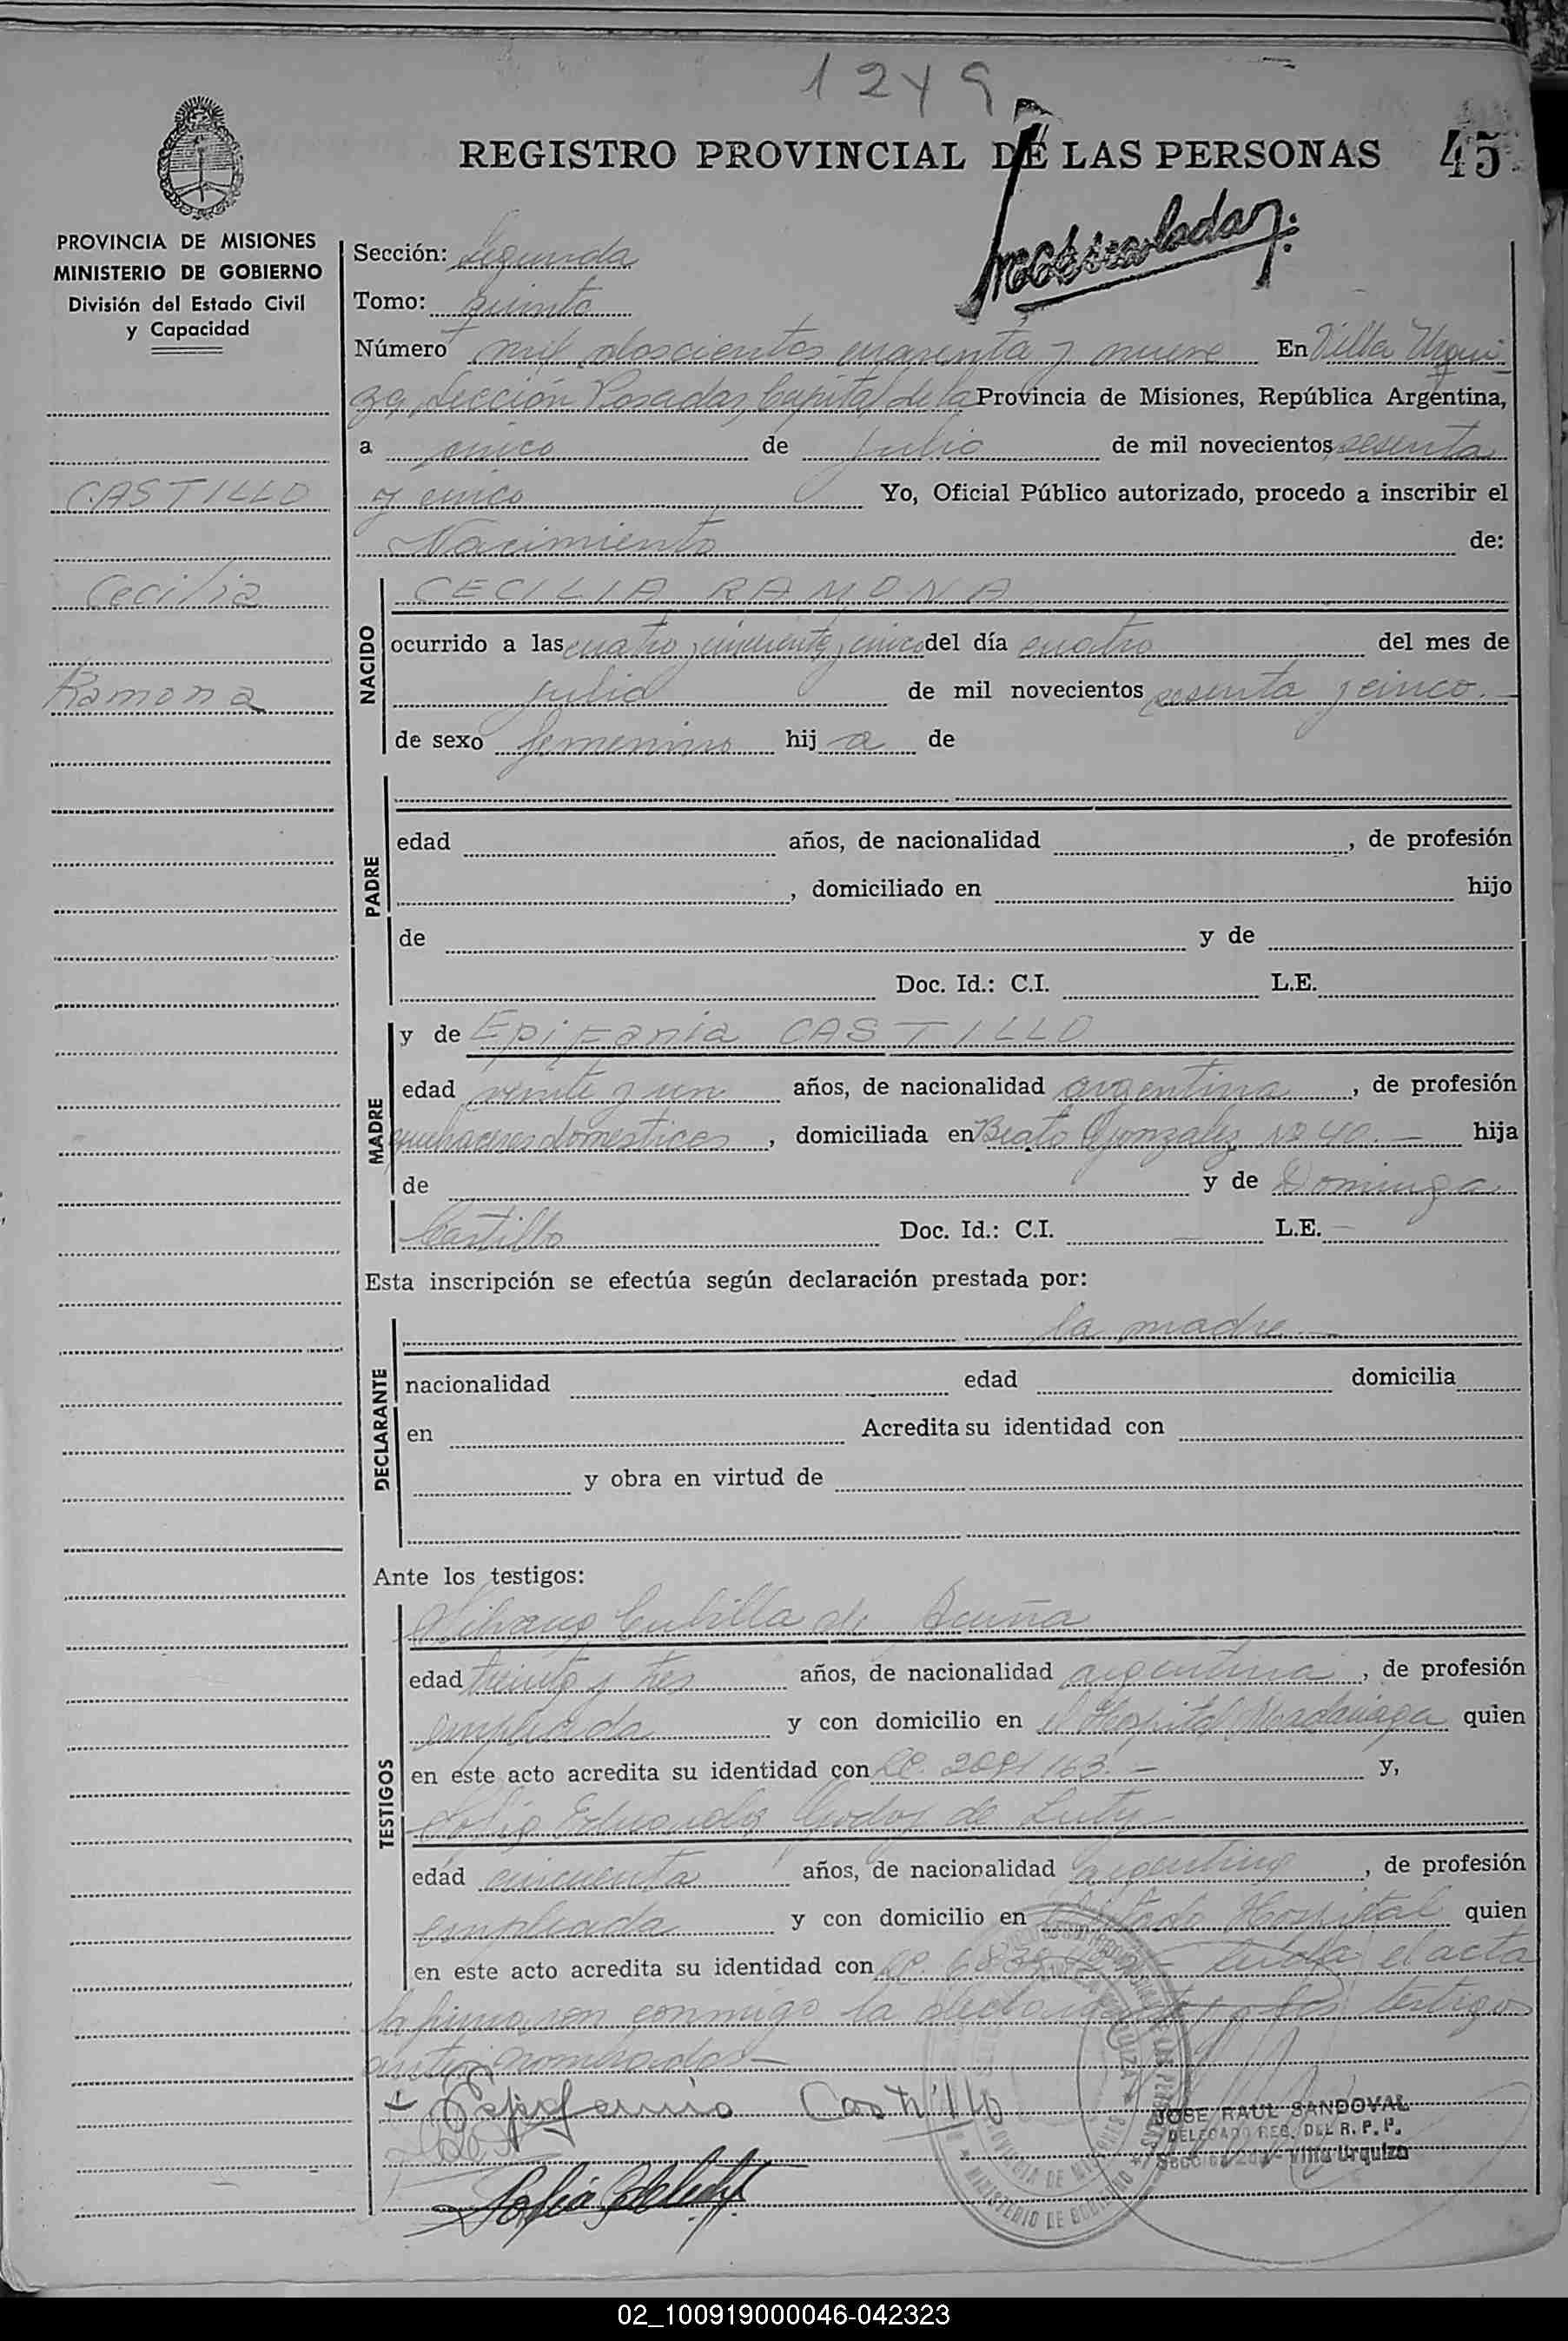 1249
REGISTRO PROVINCIAL DE LAS PERSONAS 45
PROVINCIA DE MISIONES
MINISTERIO DE GOBIERNO
División del Estado Civil
y Capacidad
CASTILLO
Cecilia
Ramona
Sección: Segunda
Tomo: quinto
Número mil doscientos cuarenta y nueve En Villa Urqui
za, Sección Posadas, Capital de la Provincia de Misiones, República Argentina,
a cinco de julio de mil novecientos sesenta
y cinco Yo, Oficial Público autorizado, procedo a inscribir el
Nacimiento de:
NACIDO
CECILIA RAMONA
ocurrido a las cuatro y cincuenta y cinco del día cuatro del mes de
julio de mil novecientos sesenta y cinco.-
de sexo femenino hij a de
PADRE
edad años, de nacionalidad , de profesión
, domiciliado en hijo
de y de
Doc. Id.: C.I. L.E.
MADRE
y de Epifania CASTILLO
edad veinte y un años, de nacionalidad argentina , de profesión
quehaceres domesticos , domiciliada en Beato Gonzalez Nº 40.- hija
de y de Dominga
Castillo Doc. Id.: C.I. - L.E. -
Esta inscripción se efectúa según declaración prestada por:
DECLARANTE
la madre.-
nacionalidad edad domicilia
en Acredita su identidad con
y obra en virtud de
Ante los testigos:
TESTIGOS
Cubilla de Acuña
edad treinta y tres años, de nacionalidad argentina , de profesión
empleada y con domicilio en el Hospital Madariaga quien
en este acto acredita su identidad con LC. 2091163.- y,
Sofia Eduarda Godoy de Luty
edad cincuenta años, de nacionalidad argentina , de profesión
empleada y con domicilio en citado Hospital quien
en este acto acredita su identidad con Leida el acta
la firman con conmigo la declarante y los testigos
antes nombrados.-
Castillo
JOSE RAUL SANDOVAL
DELEGADO REG. DEL R. P. P.
Sección 2da - Villa Urquiza
MINISTERIO DE GOBIERNO
02_100919000046-042323